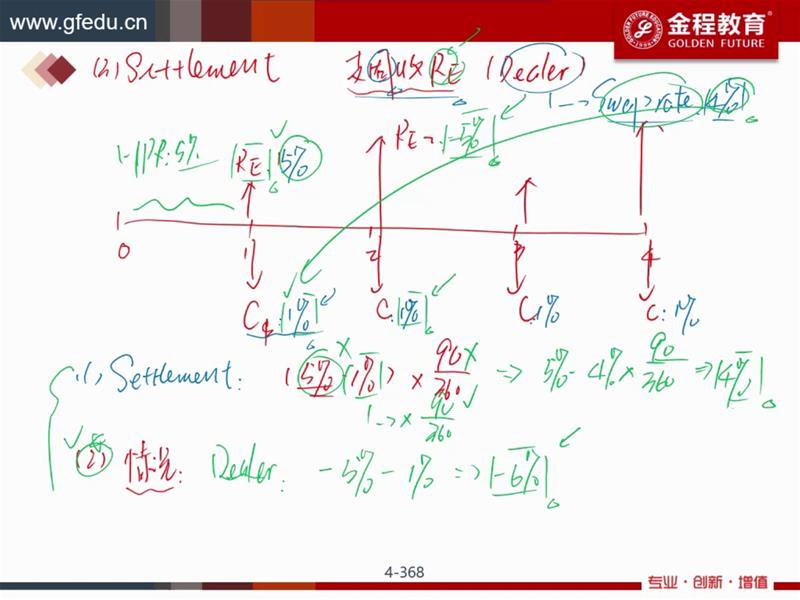 www.gfedu.cn
金程教育
GOLDEN FUTURE
(2) Settlement 支固收RE (Dealer)
Swap rate 4%
HPR: 5% RE 5% RE = -5%
0 1 2 3 4
C: 1% C: 1% C: 1% C: 1%
(1) Settlement: (5% - 1%) × 90/360 => 5% - 4% × 90/360 => 4%
1 -> × 90/360
(2) 情况: Dealer: -5% - 1% => -6%
4-368
专业·创新·增值